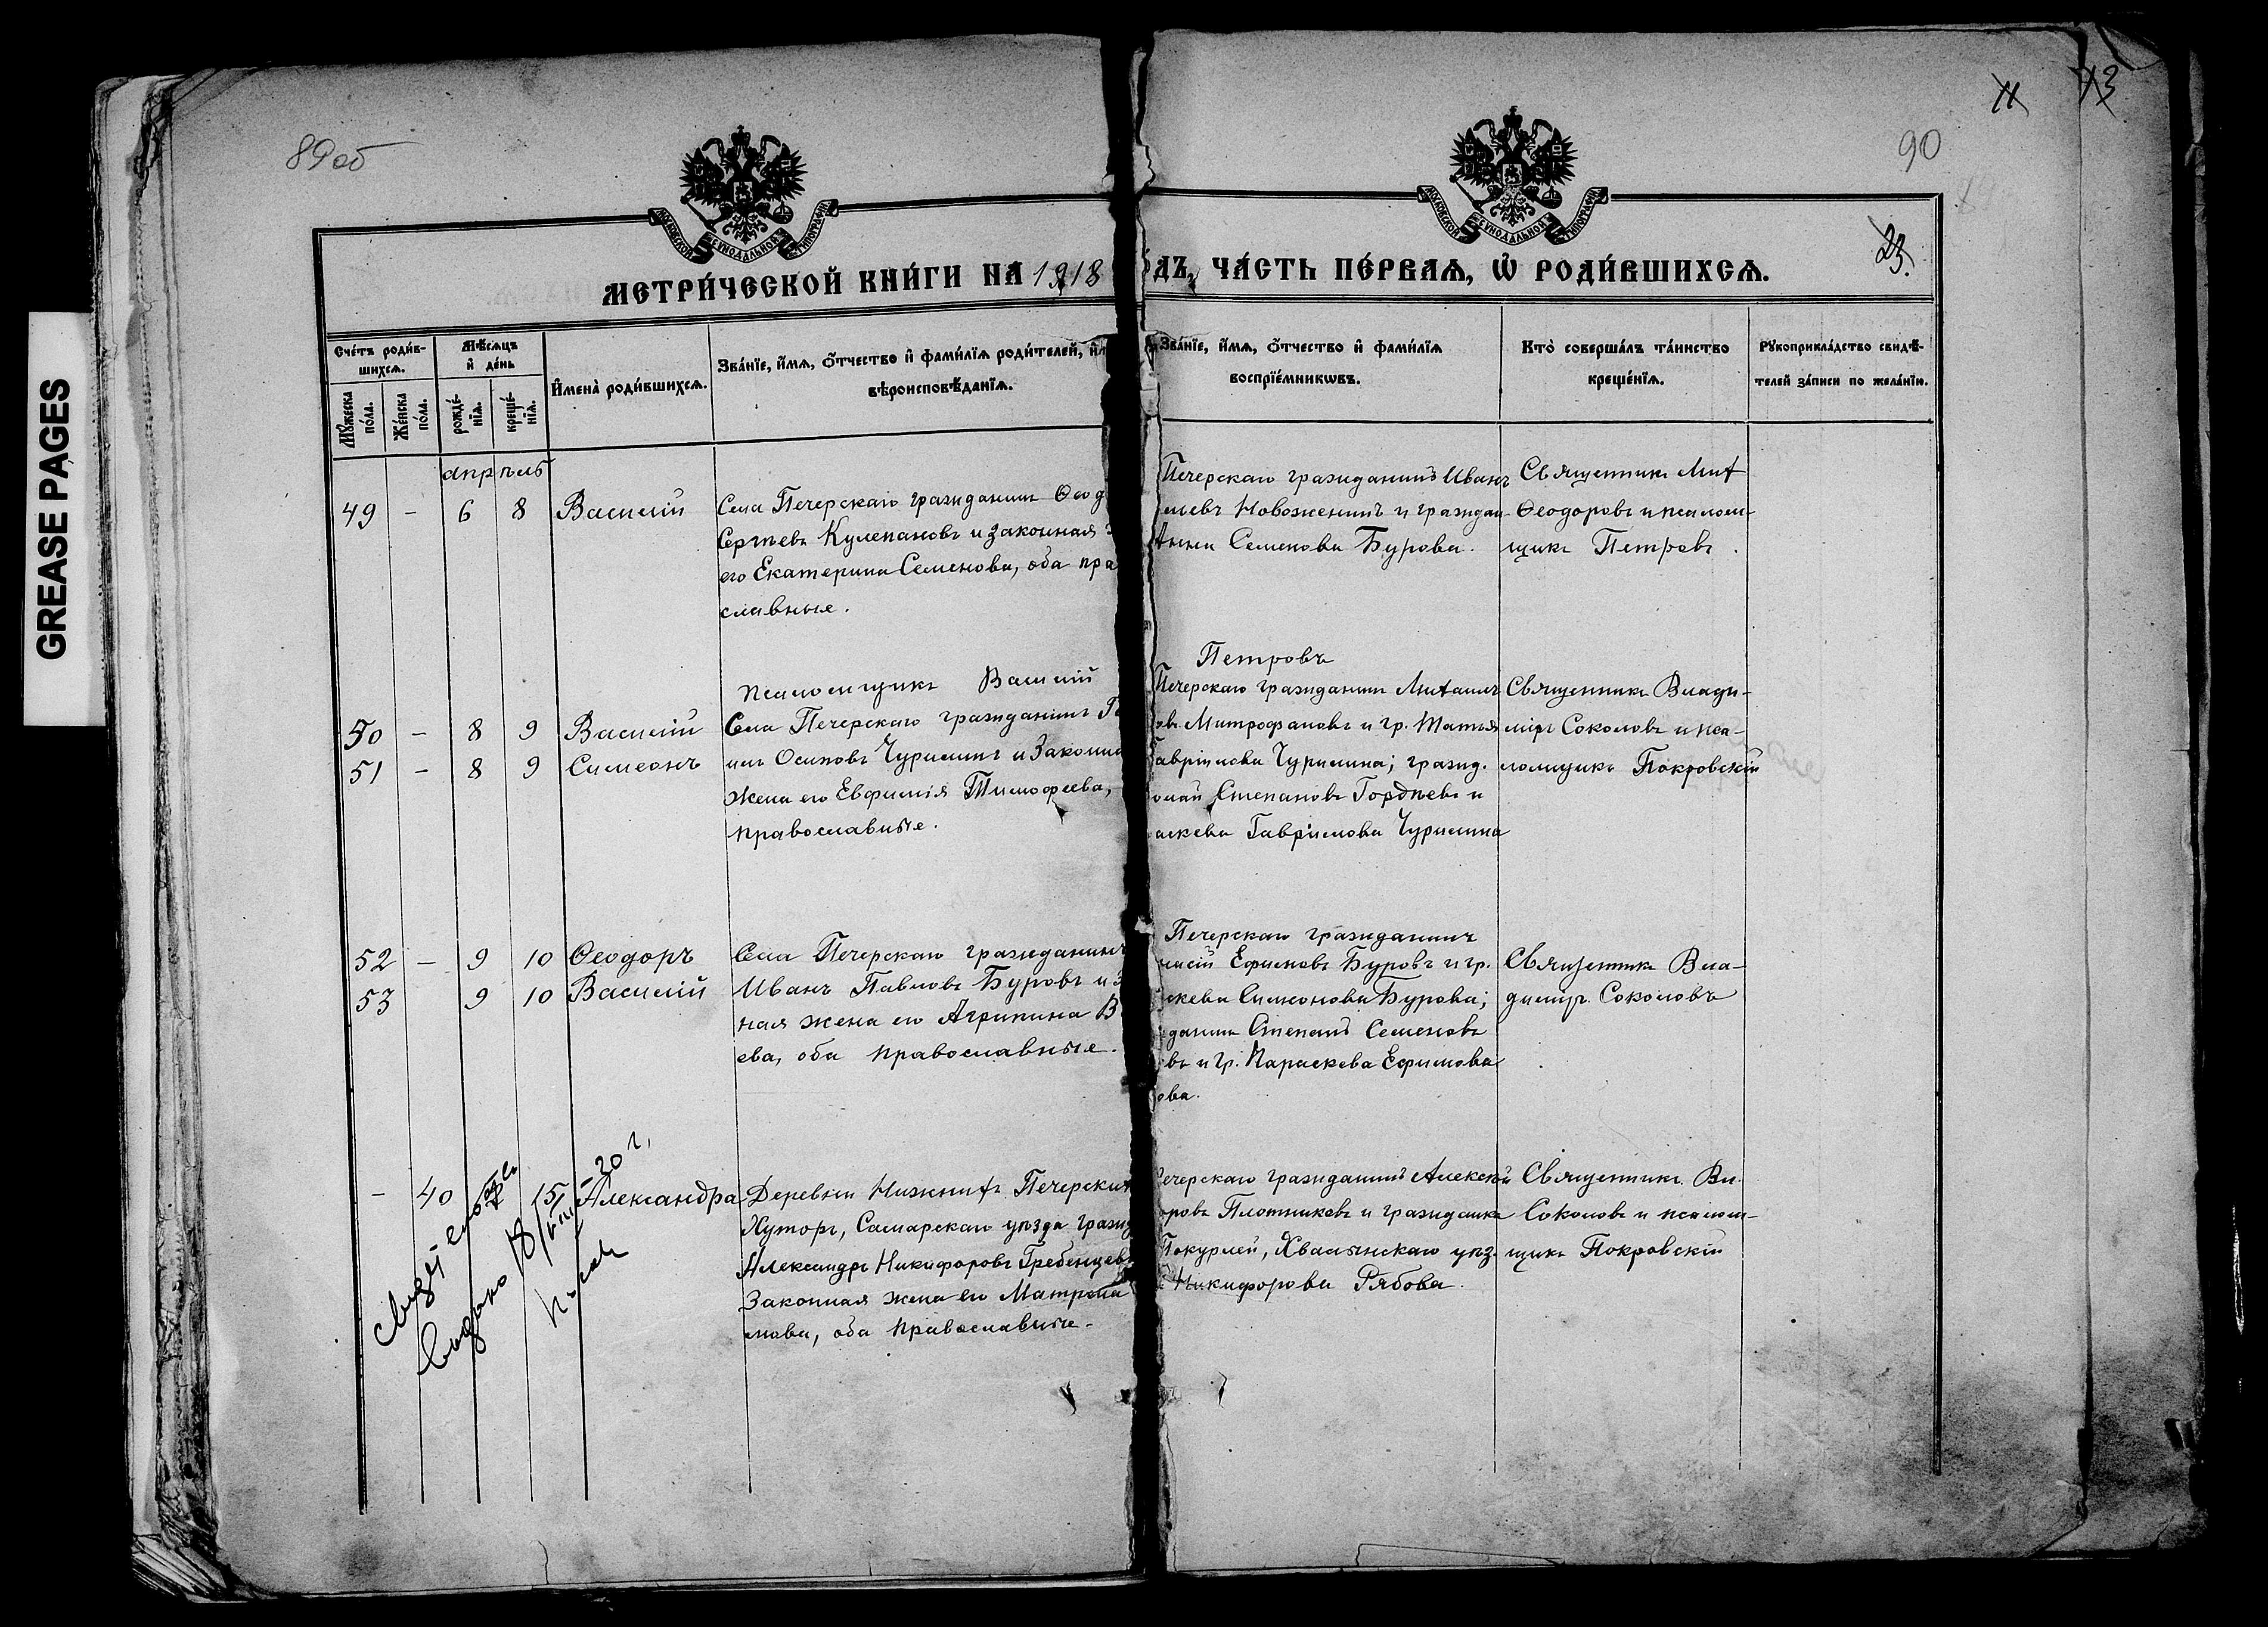 GREASE PAGES
89об
90
11
13
23.
МОСКОВСКОЙ СУНОДАЛЬНОЙ ТИПОГРАФIИ
МОСКОВСКОЙ СУНОДАЛЬНОЙ ТИПОГРАФIИ
МЕТРИ́ЧЕСКОЙ КНИ́ГИ НА 1918
ДЪ, ЧА́СТЬ ПЕ́РВАѦ, Ѡ РОДИ́ВШИХСѦ.
Сче́тъ роди́в-
шихсѧ.
Мꙋ́жеска по́ла.
Же́нска по́ла.
Мѣ́сѧцъ и де́нь
рожде́-нїѧ.
креще́-нїѧ.
Имена̀ роди́вшихсѧ.
Зва́нїе, и́мѧ, о́тчество и фами́лїѧ роди́телей, и
вѣроисповѣ́данїѧ.
Зва́нїе, и́мѧ, о́тчество и фами́лїѧ
воспрїе́мникѡвъ.
Кто̀ соверша́лъ та́инство
креще́нїѧ.
Рꙋкоприкла́дство свидѣ́-
телей за́писи по жела́нїю.
апрѣль
49 - 6 8 Василій
Села Печерскаго гражданинъ Ѳеод
Сергѣевъ Кулепановъ и законная
его Екатерина Семенова, оба пра
славные.
Печерскаго гражданинъ Иванъ
Новоженинъ и граждан-
Анна Семенова Бурова.
Священникъ Мих
Ѳеодоровъ и псалом-
щикъ Петровъ.
псаломщикъ Василій Петровъ
50 - 8 9 Василій
51 - 8 9 Симеонъ
Села Печерскаго гражданинъ Га
илъ Осиповъ Чурилинъ и законна
жена его Евфимія Тимофеева,
православные.
Печерскаго гражданинъ Михаилъ
овъ Митрофановъ и гр. Татья
Гавріилова Чурилина; гражд.
Степановъ Гордѣевъ и
аскева Гавріилова Чурилина
Священникъ Влади-
міръ Соколовъ и пса-
ломщикъ Покровскій
52 - 9 10 Ѳеодоръ
53 9 10 Василій
Села Печерскаго гражданинъ
Иванъ Павловъ Буровъ и з
ная жена его Агрипина В
ева, оба православные.
Печерскаго гражданинъ
Ефимовъ Буровъ и гр.
скева Симеонова Бурова;
жданинъ Степанъ Семеновъ
овъ и гр. Параскева Ефимова
ова.
Священникъ Вла-
димір. Соколовъ
- 40 15 Александра
выдано 30 г.
Деревни Нижнихъ Печерских
Хуторъ, Самарскаго уѣзда гражд
Александръ Никифоровъ Гребенцев
Законная жена его Матрона
мова, оба православные.
Печерскаго гражданинъ Алексѣй
оровъ Плотниковъ и гражданка
Покурлей, Хвалынскаго уѣз.
Никифорова Рябова.
Священникъ Вл.
Соколовъ и псалом-
щикъ Покровскій